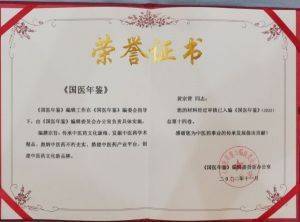 荣誉证书
《国医年鉴》
《国医年鉴》编辑工作在《国医年鉴》编委会指导
下，由《国医年鉴》编辑委员会办公室负责具体实施。
编辑宗旨：传承中医药文化脉络，发掘中医药学术
精华，弘扬中医药不朽史实，搭建中医药产业平台，创
建中医药文化新品牌。
黄宗贵 同志：
您的材料经过审核已入编《国医年鉴》(2022)
总第十四卷。
感谢您为中医药事业的传承及发展做出贡献！
《国医年鉴》编辑委员会办公室
二〇二二年十一月